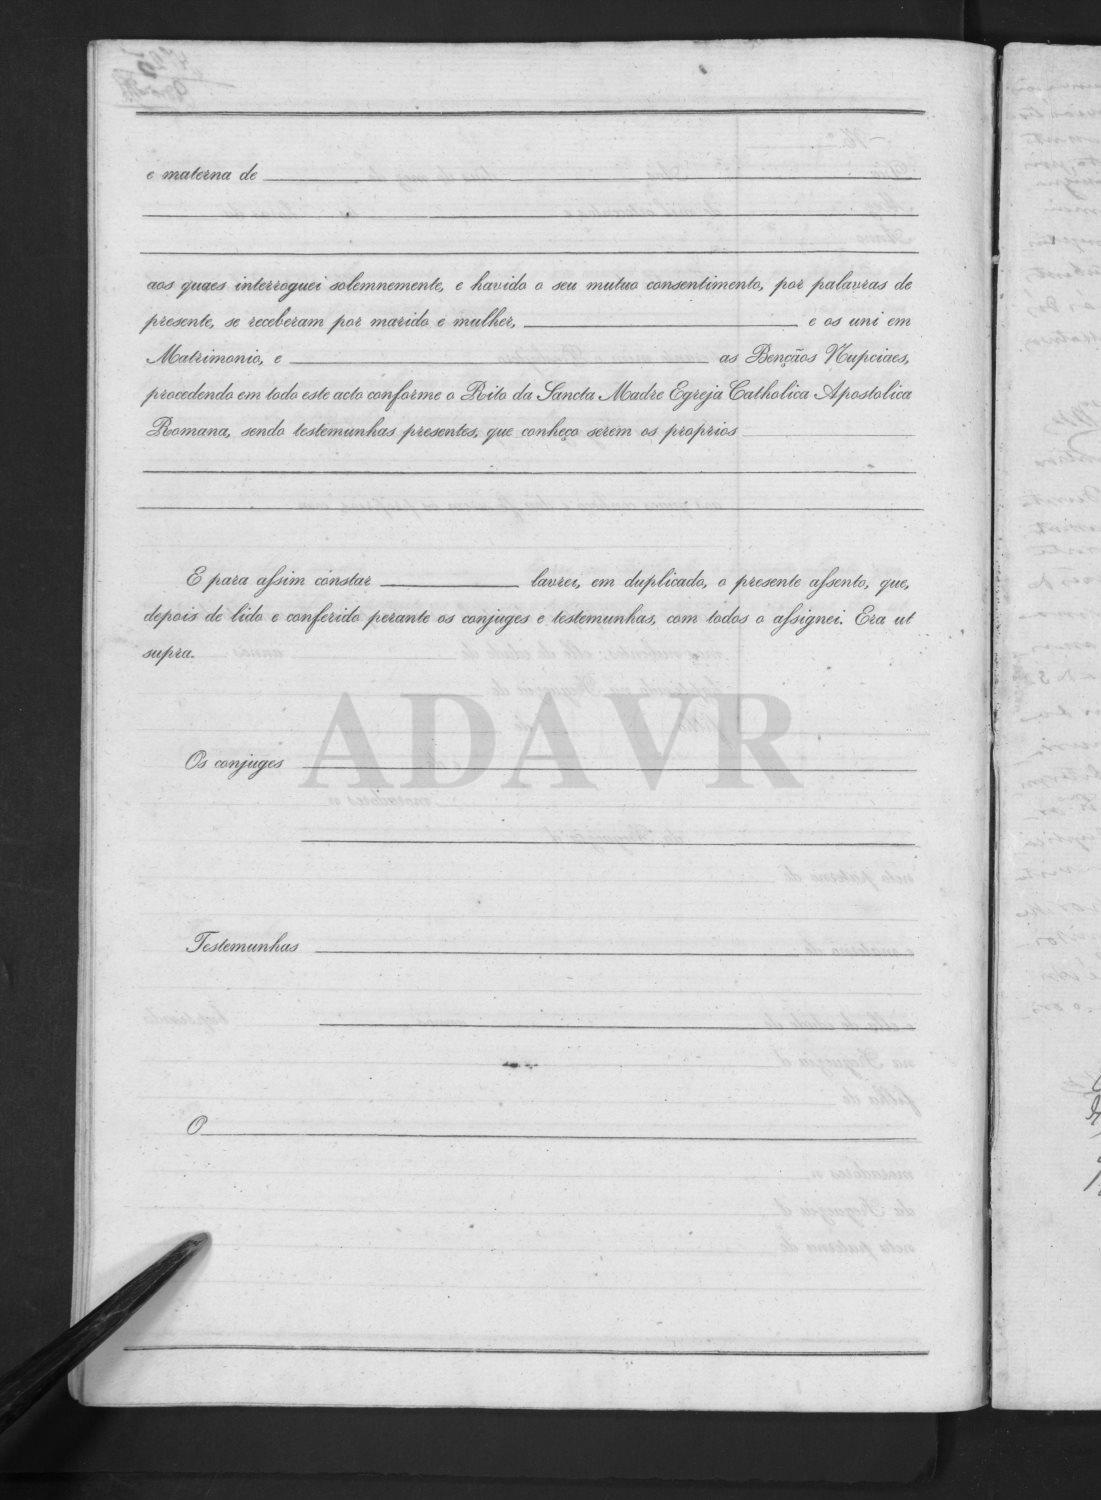 e materna de
aos quaes interroguei solemnemente, e havido o seu mutuo consentimento, por palavras de
presente, se receberam por marido e mulher, e os uni em
Matrimonio, e as Bençãos Nupciaes,
procedendo em todo este acto conforme o Rito da Sancta Madre Egreja Catholica Apostolica
Romana, sendo testemunhas presentes, que conheço serem os proprios
E para assim constar lavrei, em duplicado, o presente assento, que,
depois de lido e conferido perante os conjuges e testemunhas, com todos o assignei. Era ut
supra.
ADAVR
Os conjuges
Testemunhas
O